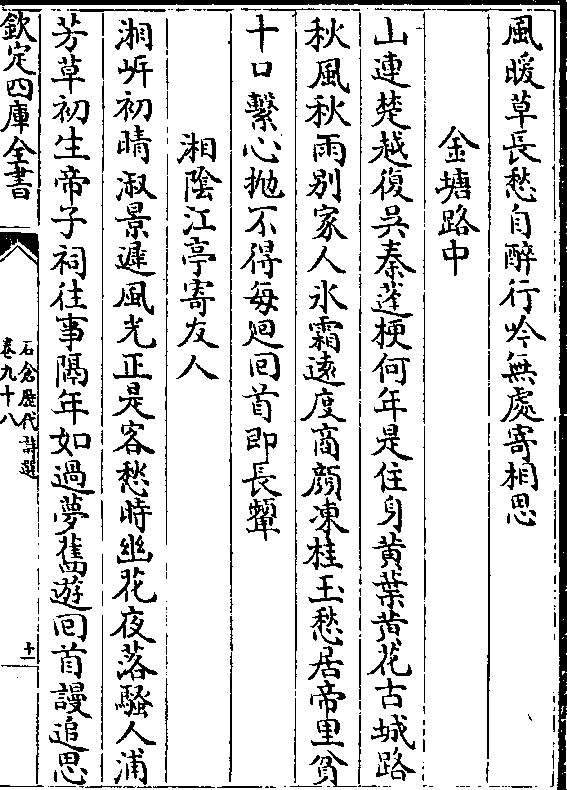 風暖草長愁自醉行吟無處寄相思
金塘路中
山連楚越復吳秦蓬梗何年是住身黄葉黄花古城路
秋風秋雨别家人氷霜逺度商顔凍桂玉愁居帝里貧
十口繫心抛不得每廻回首即長顰
湘隂江亭寄友人
湘岍初晴淑景遲風光正是客愁時幽花夜落騷人浦
芳草初生帝子祠往事隔年如過夢舊遊回首謾追思
欽定四庫全書
石倉歴代詩選
卷九十八
十一